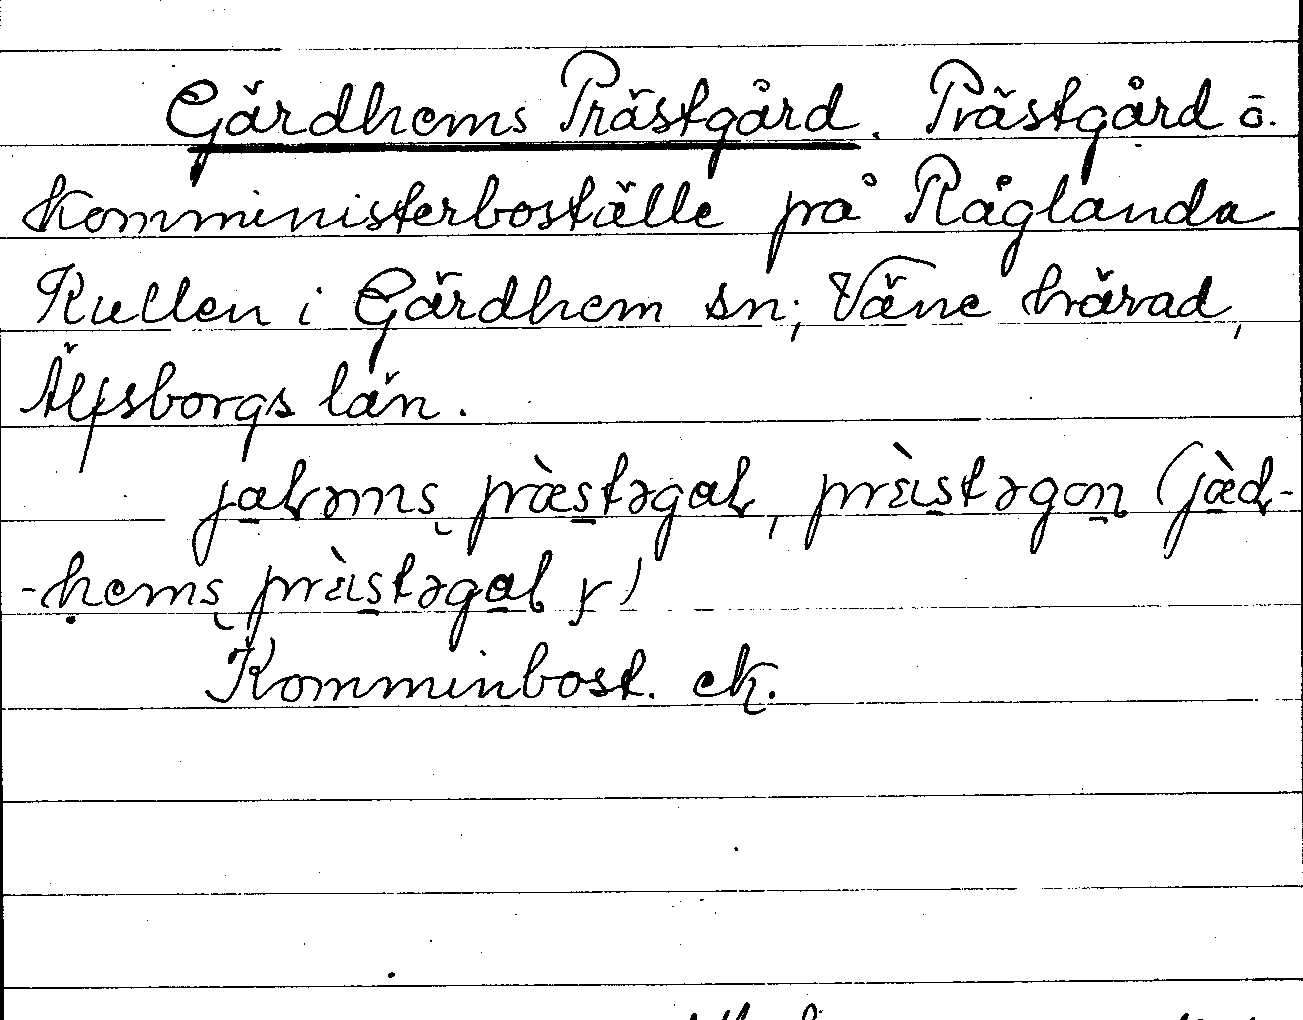 Gärdhems Prästgård. Prästgård o.
Komministerboställe på Råglanda
Kullen i Gärdhem sn; Väne härad,
Älfsborgs län.
jaləms præstəgaḷ, præstəgaṇ (jæd-
-hems præstəgaḷ r)
Komminbost. ek.